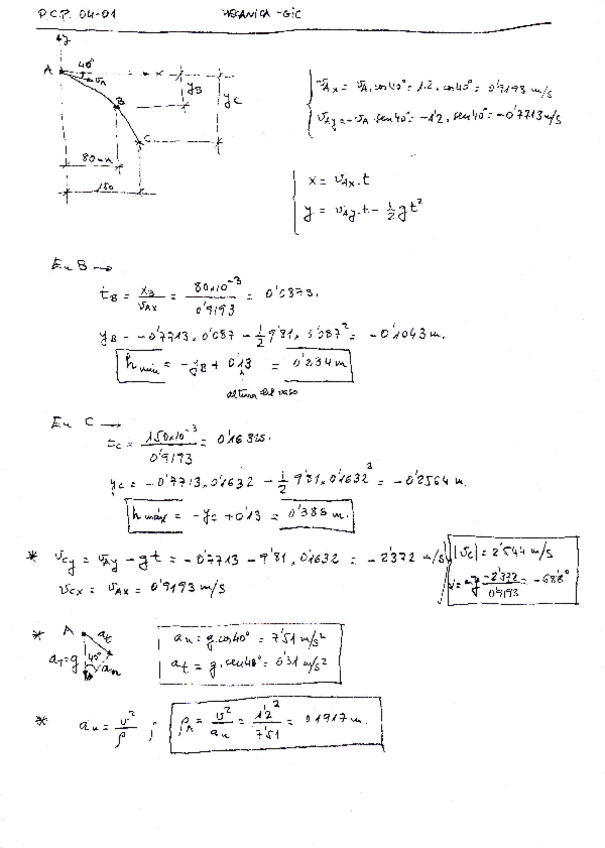 P.C.P. 04-01 MECANICA - GIC
y
A 40° x
v_A
B y_B y_C
C
80 mm
150
v_Ax = v_A . cos40° = 1'2 . cos40° = 0'9193 m/s
v_Ay = -v_A . sen40° = -1'2 . sen40° = -0'7713 m/s
x = v_Ax . t
y = v_Ay . t - 1/2 g t²
En B →
t_B = x_B / v_Ax = 80x10⁻³ / 0'9193 = 0'087s.
y_B = -0'7713 . 0'087 - 1/2 9'81 . 0'087² = -0'1043 m.
h min = -y_B + 0'13 = 0'234 m
altura del vaso
En C →
t_C = 150x10⁻³ / 0'9193 = 0'1632s.
y_C = -0'7713 . 0'1632 - 1/2 9'81 . 0'1632² = -0'2564 m.
h máx = -y_C + 0'13 = 0'386 m.
* v_Cy = v_Ay - gt = -0'7713 - 9'81 . 0'1632 = -2'372 m/s
v_Cx = v_Ax = 0'9193 m/s
|v_C| = 2'544 m/s
-2'372 / 0'9193 = -68'8°
* A a_t
a_T = g 40° a_n
a_n = g . cos40° = 7'51 m/s²
a_t = g . sen40° = 6'31 m/s²
* a_n = v² / ρ ; ρ_A = v² / a_n = 1'2² / 7'51 = 0'1917 m.